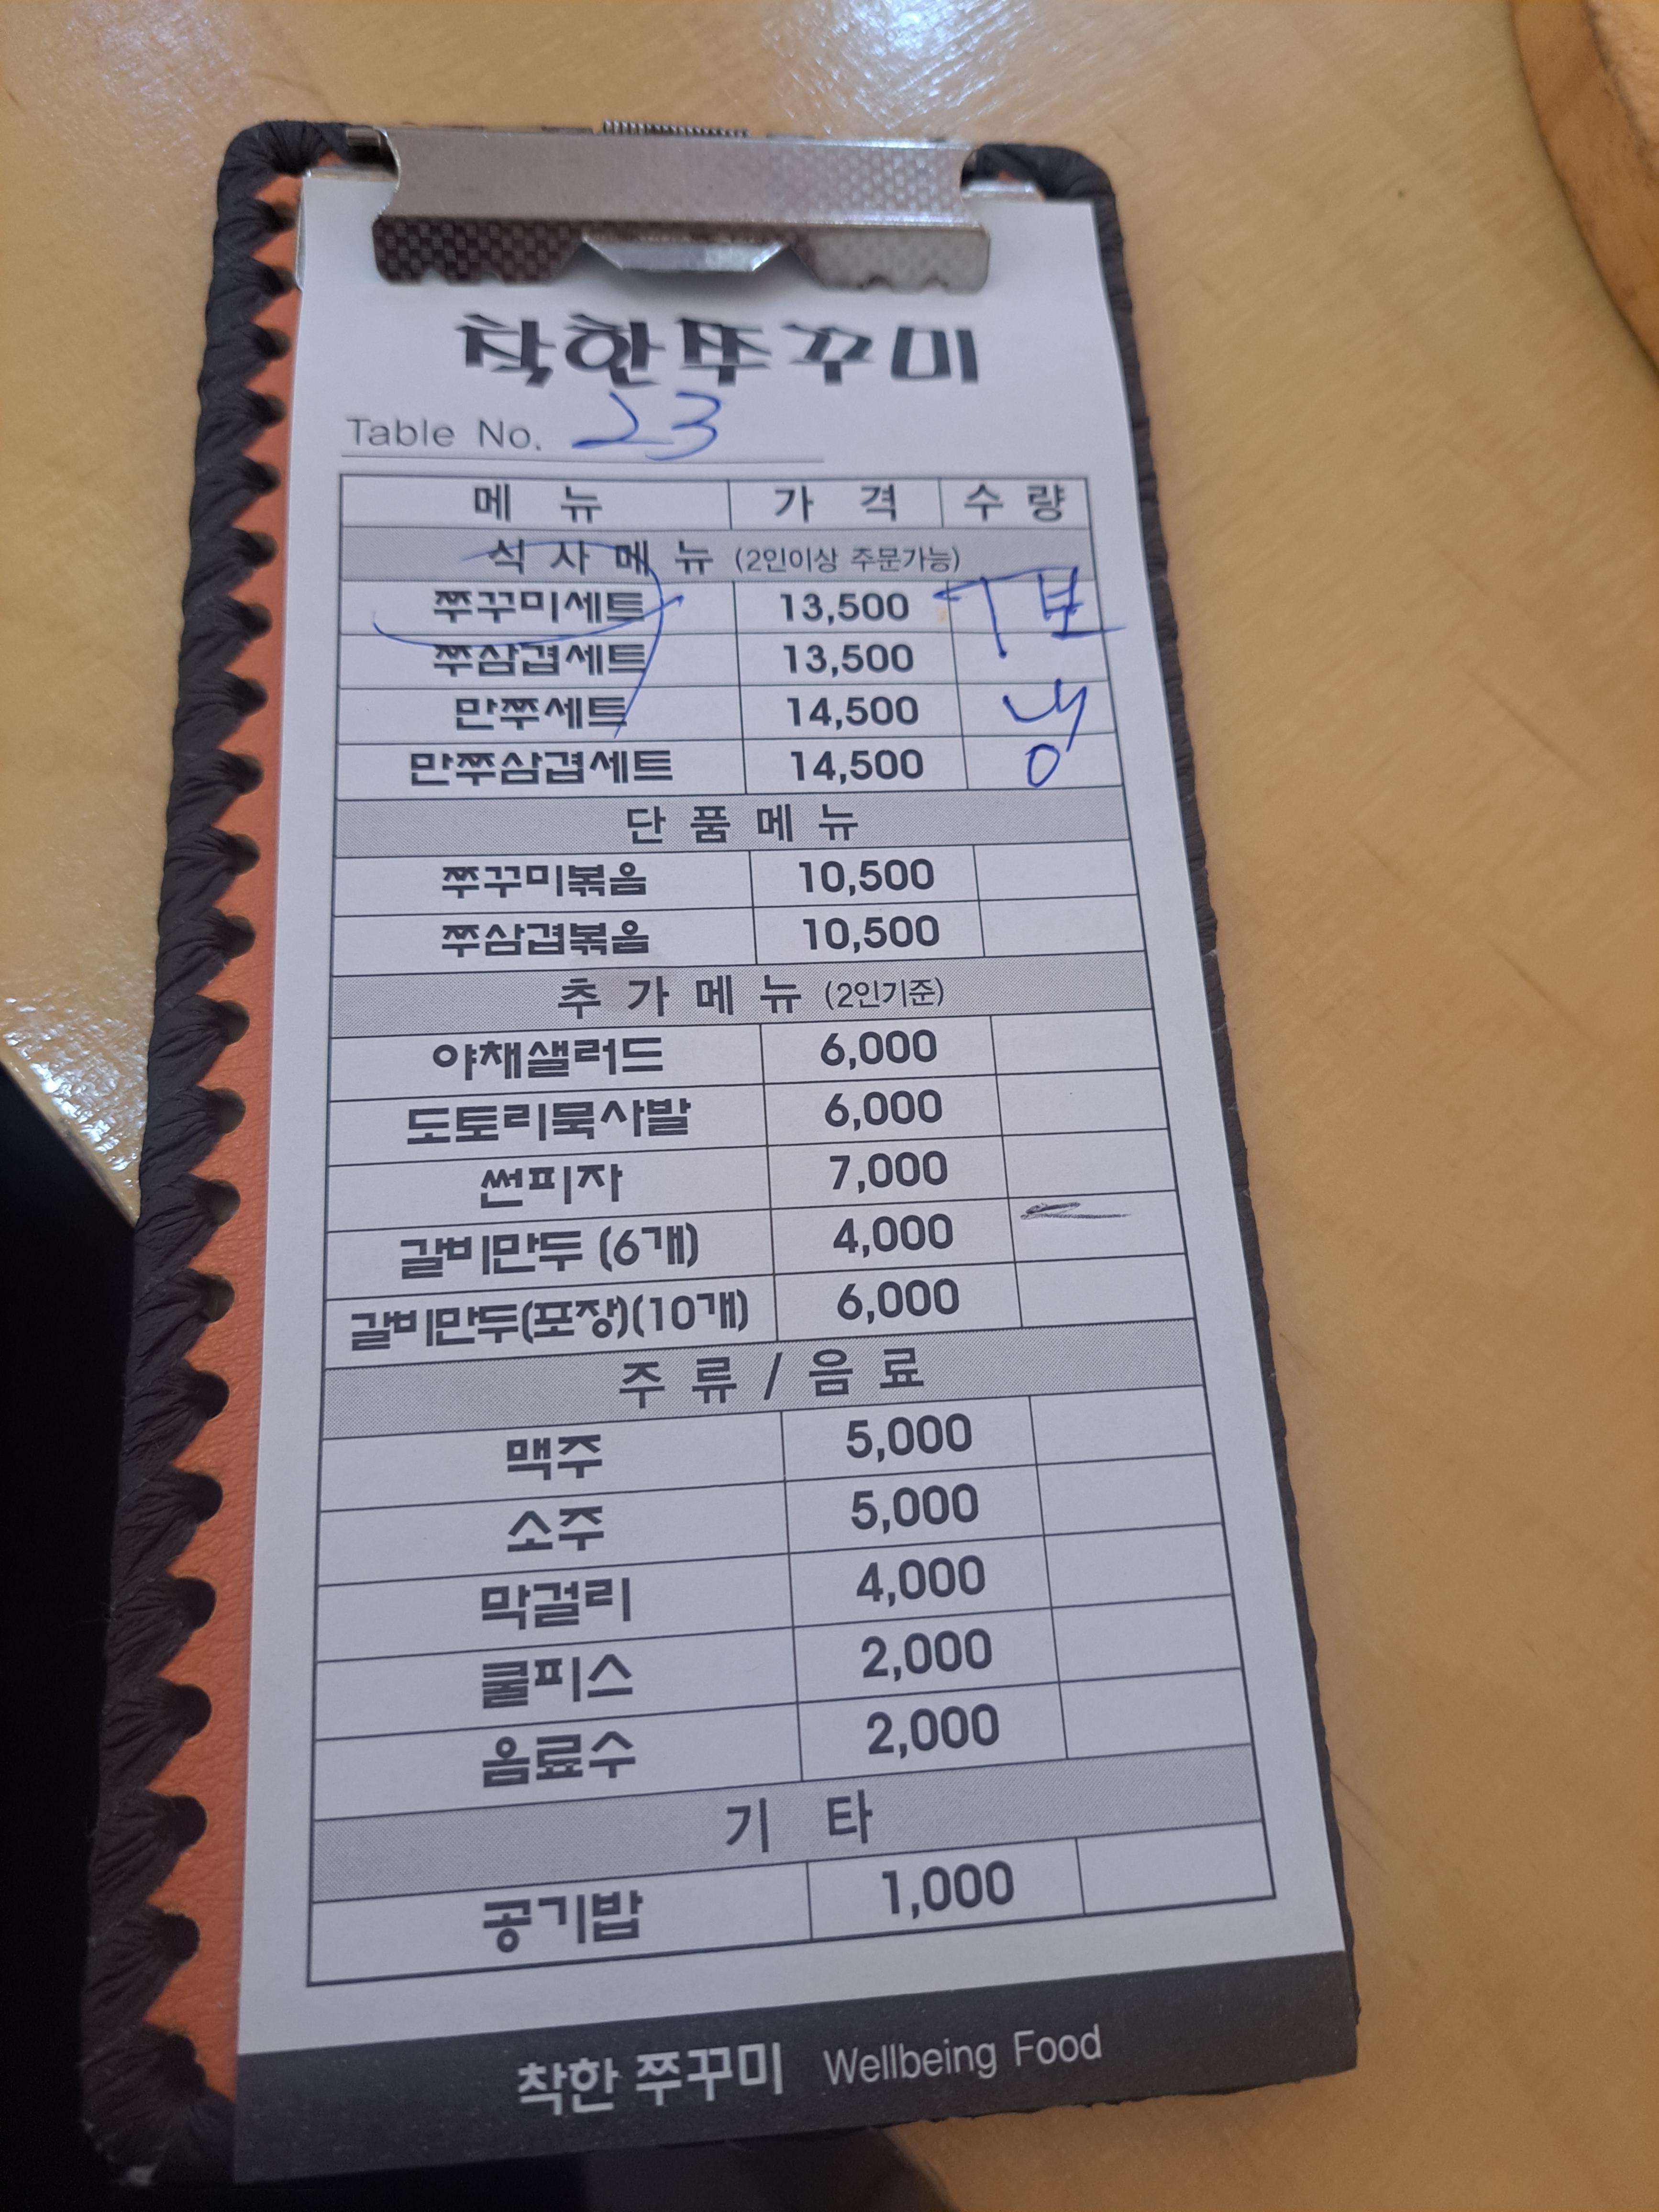 착한쭈꾸미
Table No. 23
메 뉴 가 격 수 량
식 사 메 뉴 (2인이상 주문가능)
쭈꾸미세트 13,500 보
쭈삼겹세트 13,500
만쭈세트 14,500
만쭈삼겹세트 14,500
단 품 메 뉴
쭈꾸미볶음 10,500
쭈삼겹볶음 10,500
추 가 메 뉴 (2인기준)
야채샐러드 6,000
도토리묵사발 6,000
썬피자 7,000
갈비만두 (6개) 4,000
갈비만두(포장)(10개) 6,000
주 류 / 음 료
맥주 5,000
소주 5,000
막걸리 4,000
쿨피스 2,000
음료수 2,000
기 타
공기밥 1,000
착한 쭈꾸미 Wellbeing Food